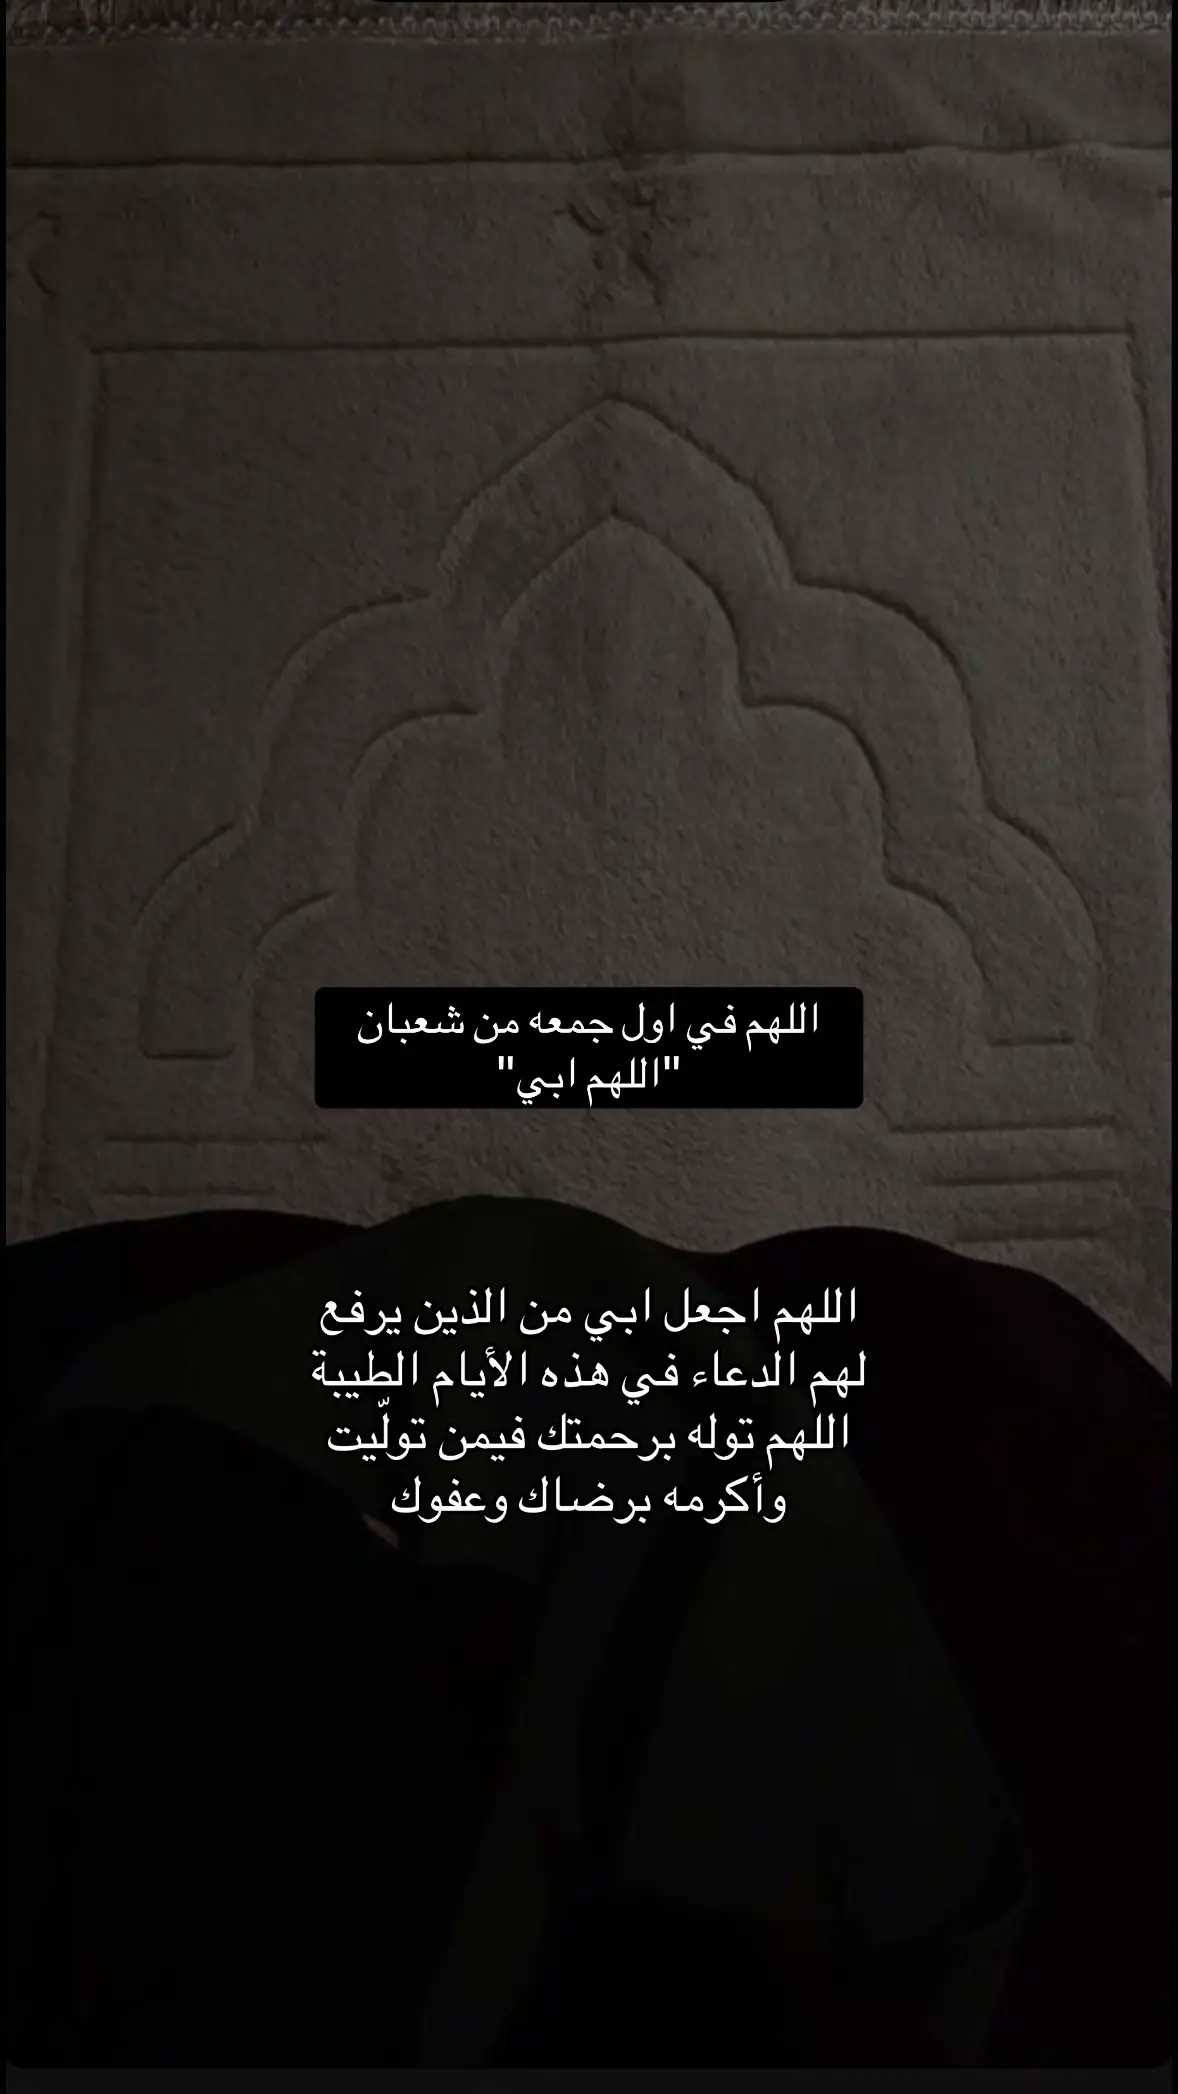 اللهم في اول جمعه من شعبان
"اللهم ابي"
اللهم اجعل ابي من الذين يرفع
لهم الدعاء في هذه الأيام الطيبة
اللهم توله برحمتك فيمن تولّيت
وأكرمه برضاك وعفوك